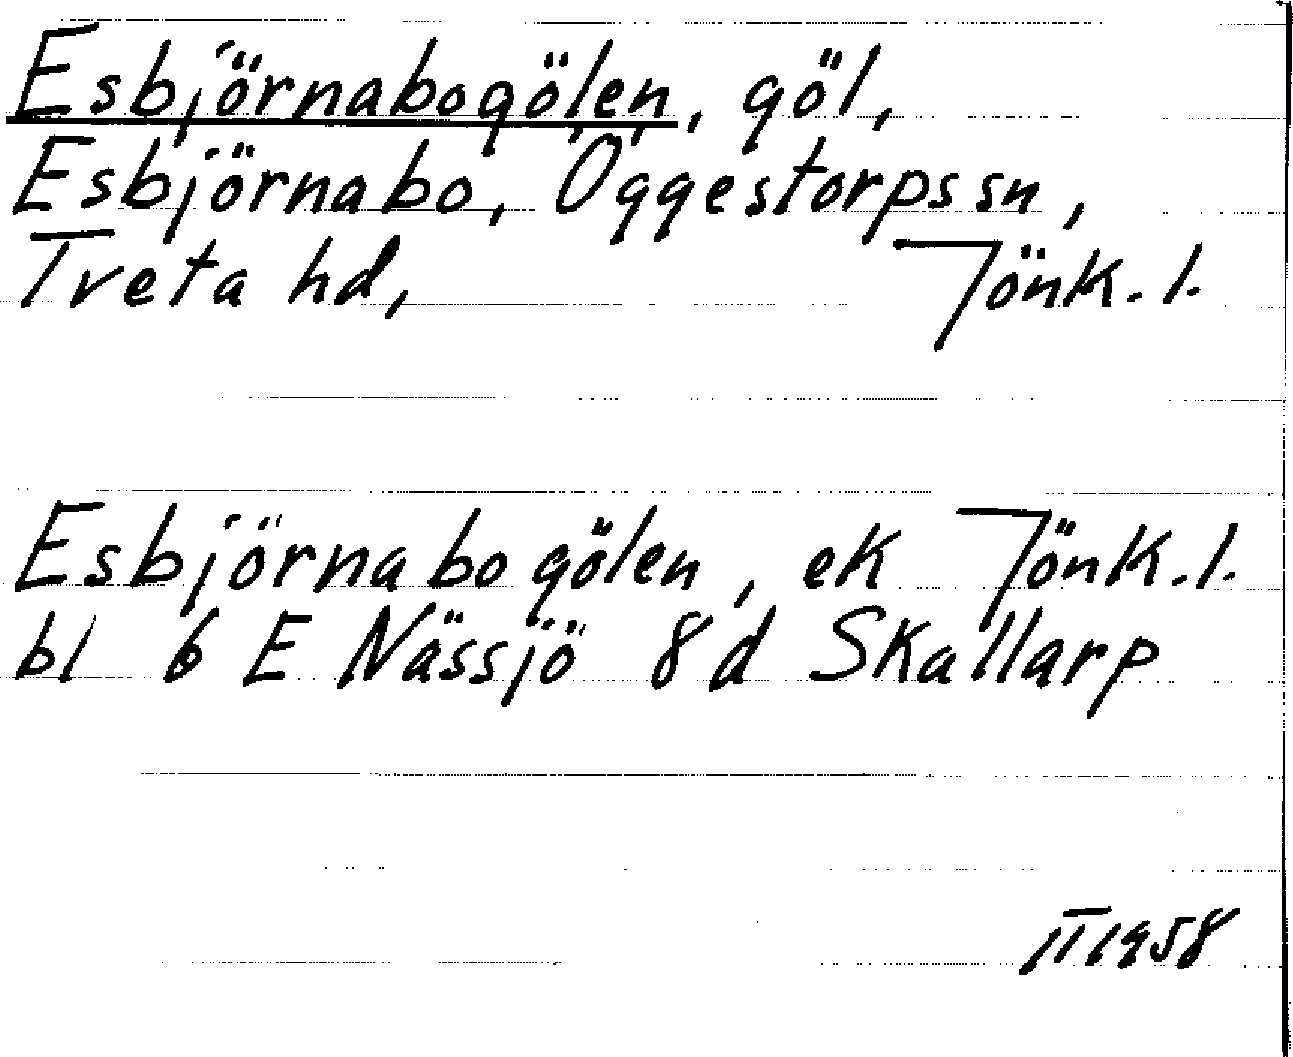 Esbjörnabogölen, göl,
Esbjörnabo, Öggestorps sn,
Tveta hd, Jönk. l.
Esbjörnabogölen, ek Jönk. l.
bl 6 E Nässjö 8d Skallarp
II 1958